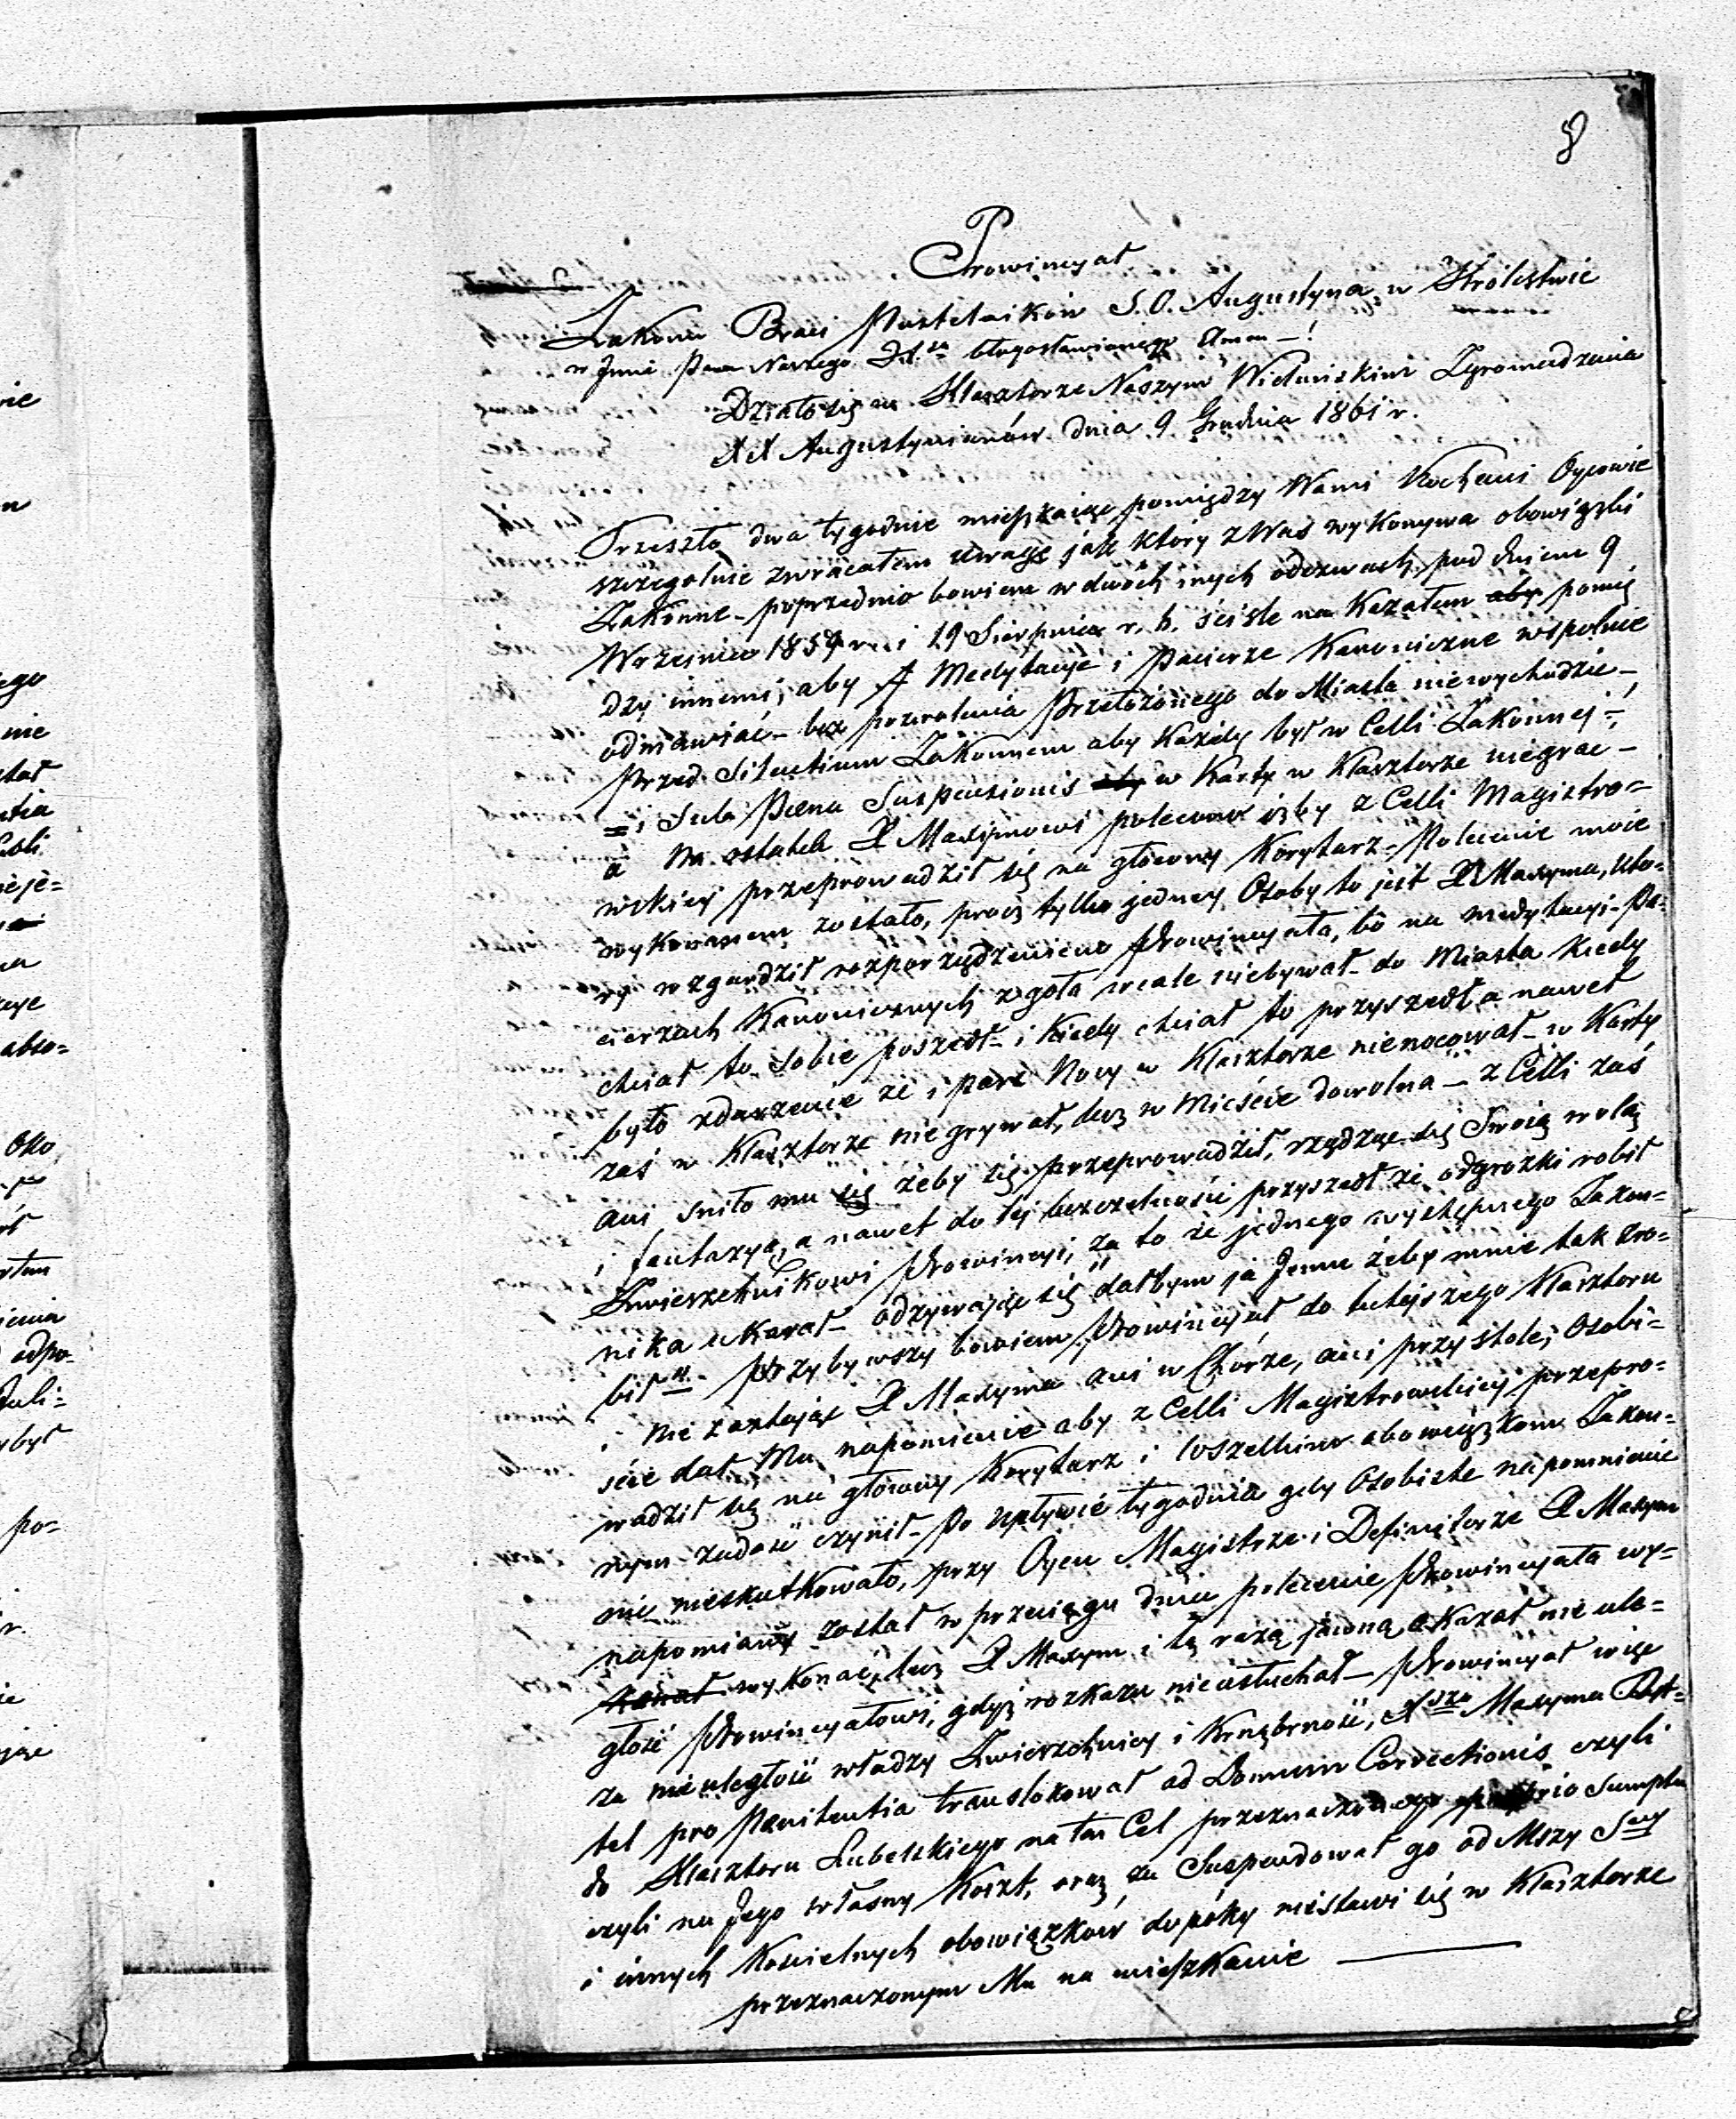 8
Prowincyał
Zakonu Braci Pustelników S. O. Augustyna w Królestwie
w Jmie Pana Naszego błogosławionego Amen —!
Działo się w Klasztorze Naszym Wieluńskim Zgromadzenia
XX Augustyianów dnia 9 Grudnia 1861 r.
Przeszło dwa tygodnie mieszkając pomiędzy Wami Kochani Oycowie
szczególnie zwracałem uwagę jak który z Was wykonywa obowiązki
Zakonne – poprzednio bowiem w dwóch mych odezwach pod dniem 9
Września 1859 r. i 19 Sierpnia r. b. ściśle na Kazałem aby pomię
dzy innemi, aby Medytacye i Pacierze Kanoniczne wspólnie
odmawiać – bez pozwolenia Przełożonego do Miasta niewychodzić –
przed Silentium Zakonnem aby Każdy był w Celli Zakonnej –,
= i Sub Pæna Suspensionis aby w Karty w Klasztorze niegrać –
a Na ostatek X Maxymowi polecono iżby z Celli Magistro=
wskiey przeprowadził się na główny Korytarz – Polecenie moie
wykonanem zostało, procz tylko jedney Osoby to jest X Maxyma, któ=
ry wzgardził rozporządzeniem Prowincyała, bo na medytacyi – Pa=
cierzach Kanonicznych zgoła wcale niebywał – do Miasta kiedy
chciał to sobie poszedł – i Kiedy chciał to przyszedł a nawet
było zdarzenie że i parę Nocy w Klasztorze nienocował – w Karty
zaś w Klasztorze nie grywał, lecz w Mieście dowolna – z Celli zaś
ani śniło mu się żeby się przeprowadził, rządząc się Swoią wolą
i fantazyą, a nawet do tej bezczelności przyszedł że odgrozki robił
Zwierzchnikowi Prowincyi, za to że jednego występnego Zakon=
nika ukarał – odzywając się „dałbym ja Jemu żeby mnie tak zro=
bił“ – Przybywszy bowiem Prowincyał do tutejszego Klasztoru
i Nie zastając X Maxyma ani w Chórze, ani przy stole, Osobi=
ście dał Mu napomnienie aby z Celli Magistrowskiey przepro=
wadził się na główny Korytarz i Wszelkim obowiązkom Zakon=
nym zadość czynił – Po upływie tygodnia gdy Osobiste napomnienie
nic nieskutkowało, przy Oycu Magistrze i Definitorze X Maxym
napomiany został w przeciągu dnia polecenie Prowincyała wy=
konał wykonać, lecz X Maxym i tą razą jawną okazał nie ule=
głość Prowincyałowi, gdyż rozkazu nieusłuchał – Prowincyał więc
za nieuległość władzy Zwierzchniey i Krnąbrność, Xdza Maxyma
tel pro Pænitentia translokował ad Domum Correctionis czyli
do Klasztoru Lubelskiego na ten Cel przeznaczonego sumptu
czyli na Jego własny Koszt, oraz za Suspendował go od Mszy Sej
i innych Kościelnych obowiązków dopóky niestawi się w Klasztorze
przeznaczonym Mu na mieszkanie —